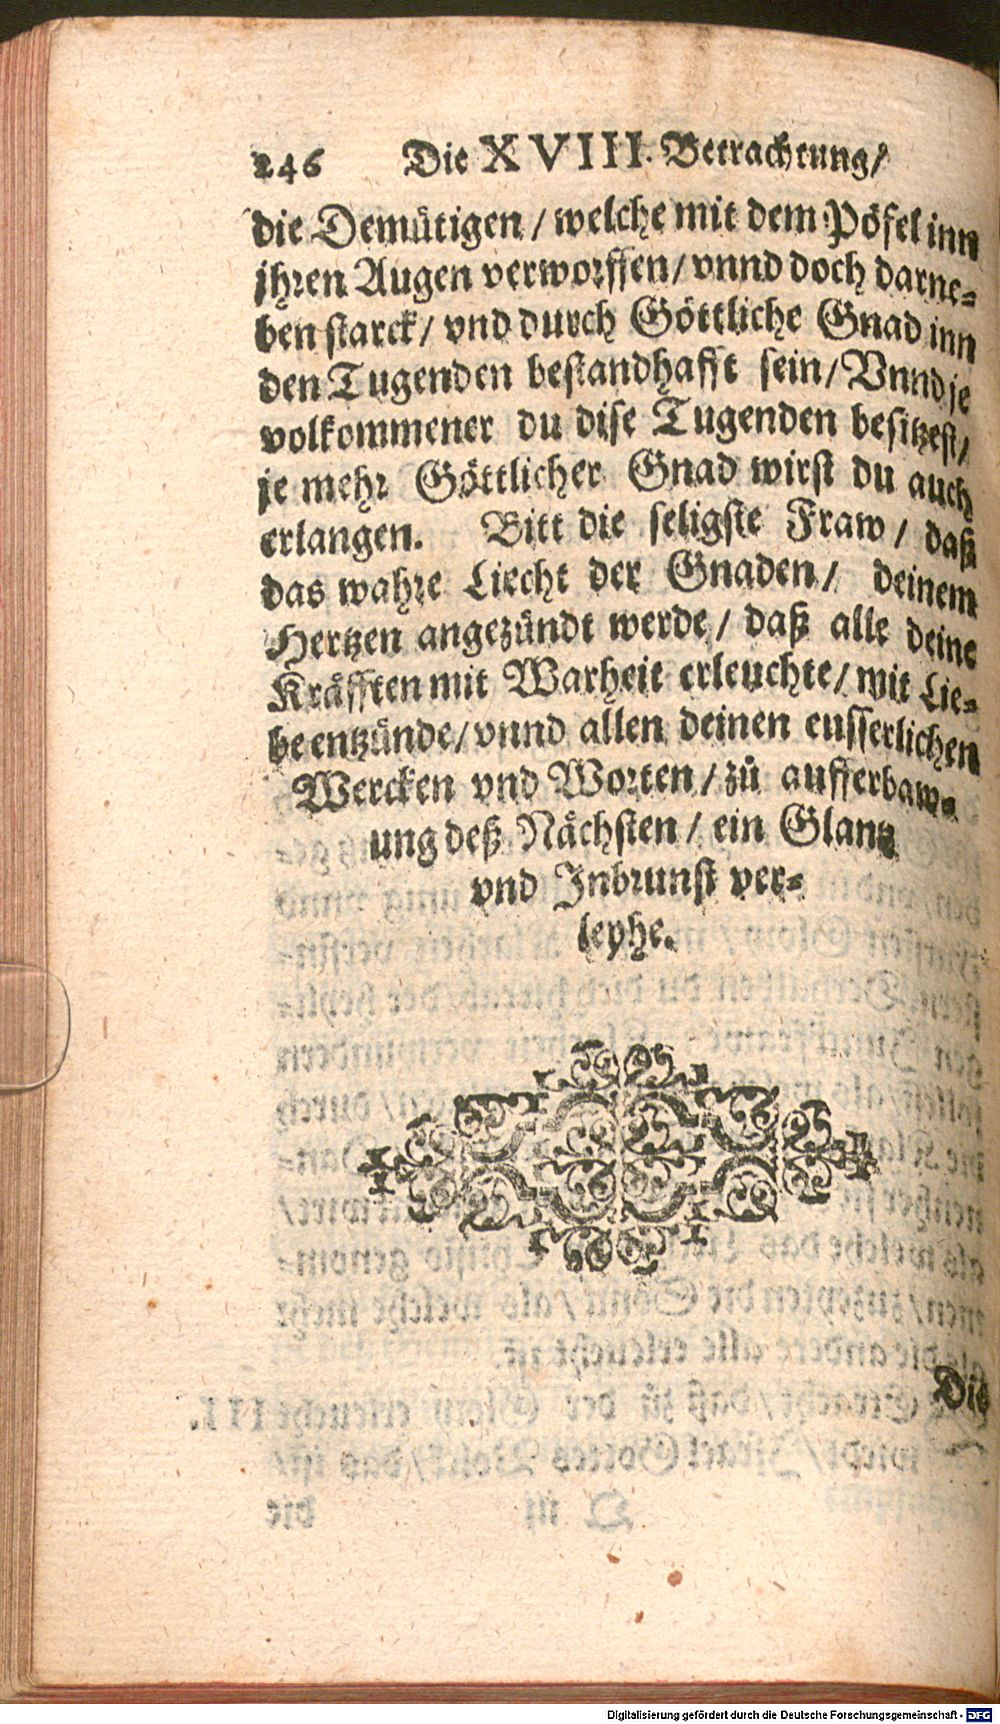 246 Die XVIII. Betrachtung/
die Demütigen / welche mit dem Pöfel inn
jhren Augen verworffen / vnnd doch darne-
ben starck / vnd durch Göttliche Gnad inn
den Tugenden bestandhafft sein / Vnnd je
volkommener du dise Tugenden besitzest /
je mehr Göttlicher Gnad wirst du auch
erlangen. Bitt die seligste Fraw / daß
das wahre Liecht der Gnaden / deinem
Hertzen angezündt werde / daß alle deine
Kräfften mit Warheit erleuchte / mit Lie-
be entzünde / vnnd allen deinen eusserlichen
Wercken vnd Worten / zů aufferbaw-
ung deß Nächsten / ein Glantz
vnd Jnbrunst ver-
leyhe.
Die
Digitalisierung gefördert durch die Deutsche Forschungsgemeinschaft - DFG